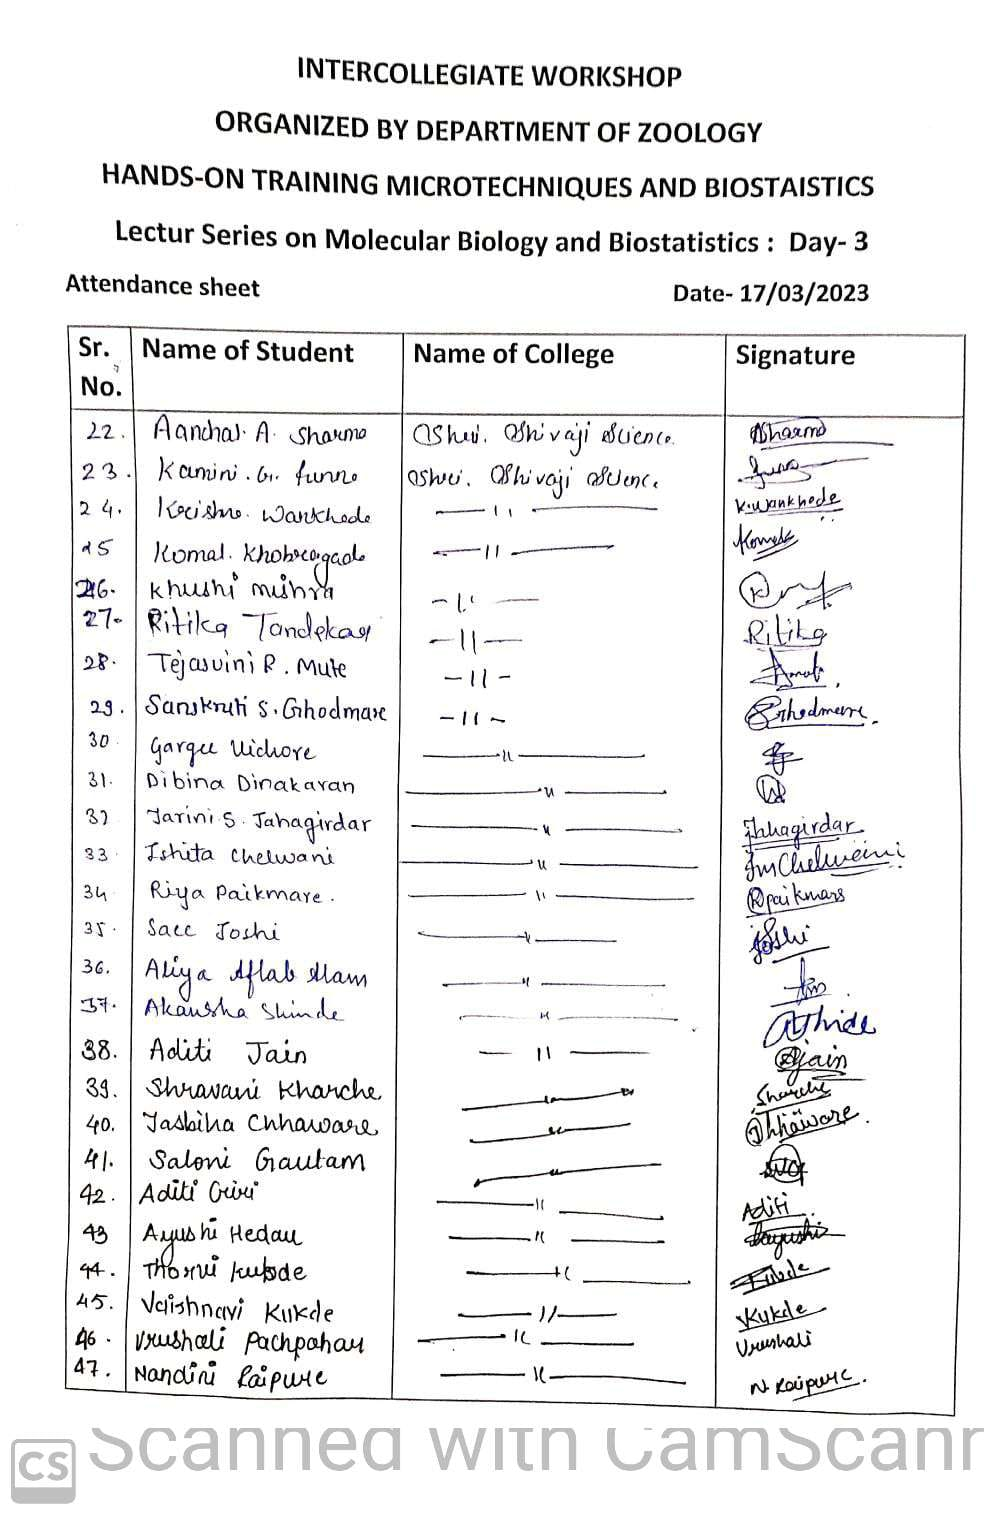 INTERCOLLEGIATE WORKSHOP
ORGANIZED BY DEPARTMENT OF ZOOLOGY
HANDS-ON TRAINING MICROTECHNIQUES AND BIOSTAISTICS
Lectur Series on Molecular Biology and Biostatistics : Day- 3
Attendance sheet Date- 17/03/2023
Sr. No. Name of Student Name of College Signature
22. Aanchal. A. Sharma Shri. Shivaji Science. Sharma
23. Kamini. G. Shri. Shivaji Science.
24. Wankhede —11— K.Wankhede
25 Komal. Khobragade —11— Komal
26. Khushi Mishra —11—
27. Ritika Tandekar —11— Ritika
28. Tejasvini R. Mute —11—
29. Sanskruti S. Ghodmare —11— Ghodmare.
30. Gargee Vichore —11—
31. Dibina Dinakaran —11—
32 Tarini S. Jahagirdar —11— Jahagirdar
33. Ishita Chelwani —11— Chelwani
34. Riya Paikmare. —11— Rpaikmare
35. Saee Joshi —11— Joshi
36. Aliya Aftab Alam —11—
37. Akansha Shinde —11—
38. Aditi Jain —11— Ajain
39. Shravani Kharche —11—
40. Chhaware —11— Chhaware.
41. Saloni Gautam —11—
42. Aditi Giri —11— Aditi
43 Ayushi Hedau —11— Ayushi
44. Kukde —11— Kukde
45. Vaishnavi Kukde —11— Kukde
46. Vrushali —11— Vrushali
47. Nandini Raipure —11— N. Raipure.
CS Scanned with CamScanr